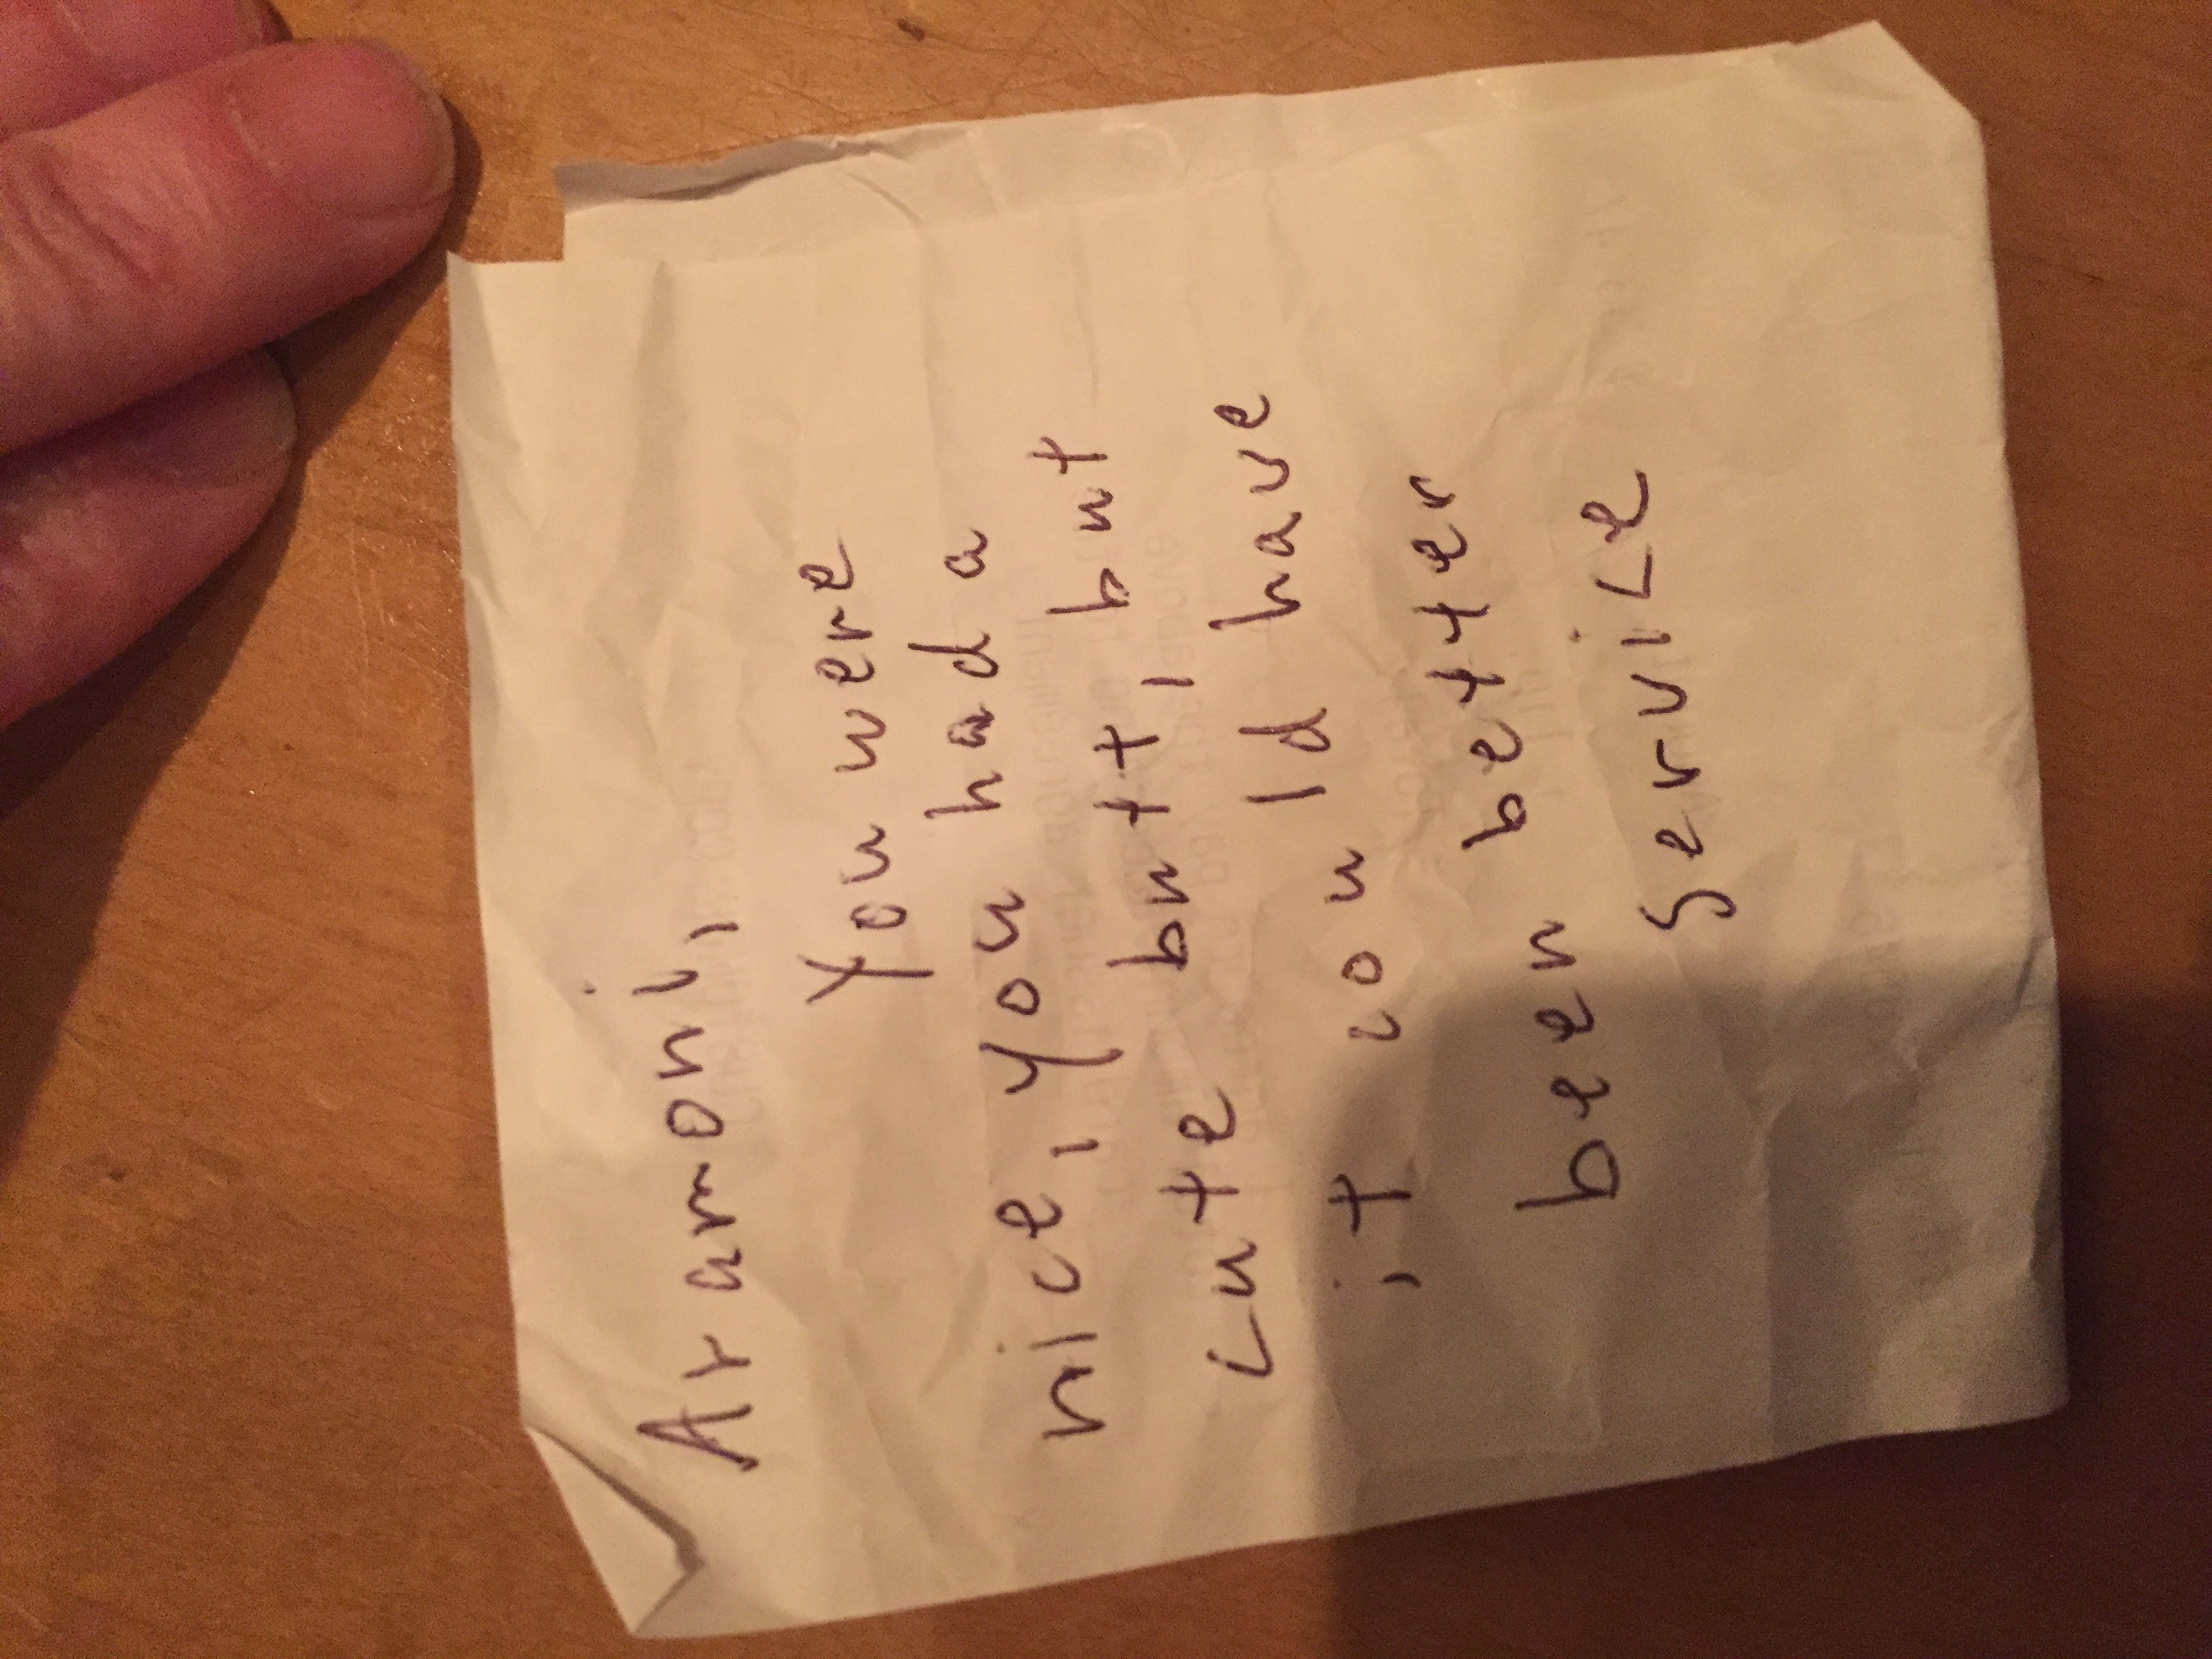 Aramoni,
You were
nice, you had a
cute butt, but
it could have
been better
service